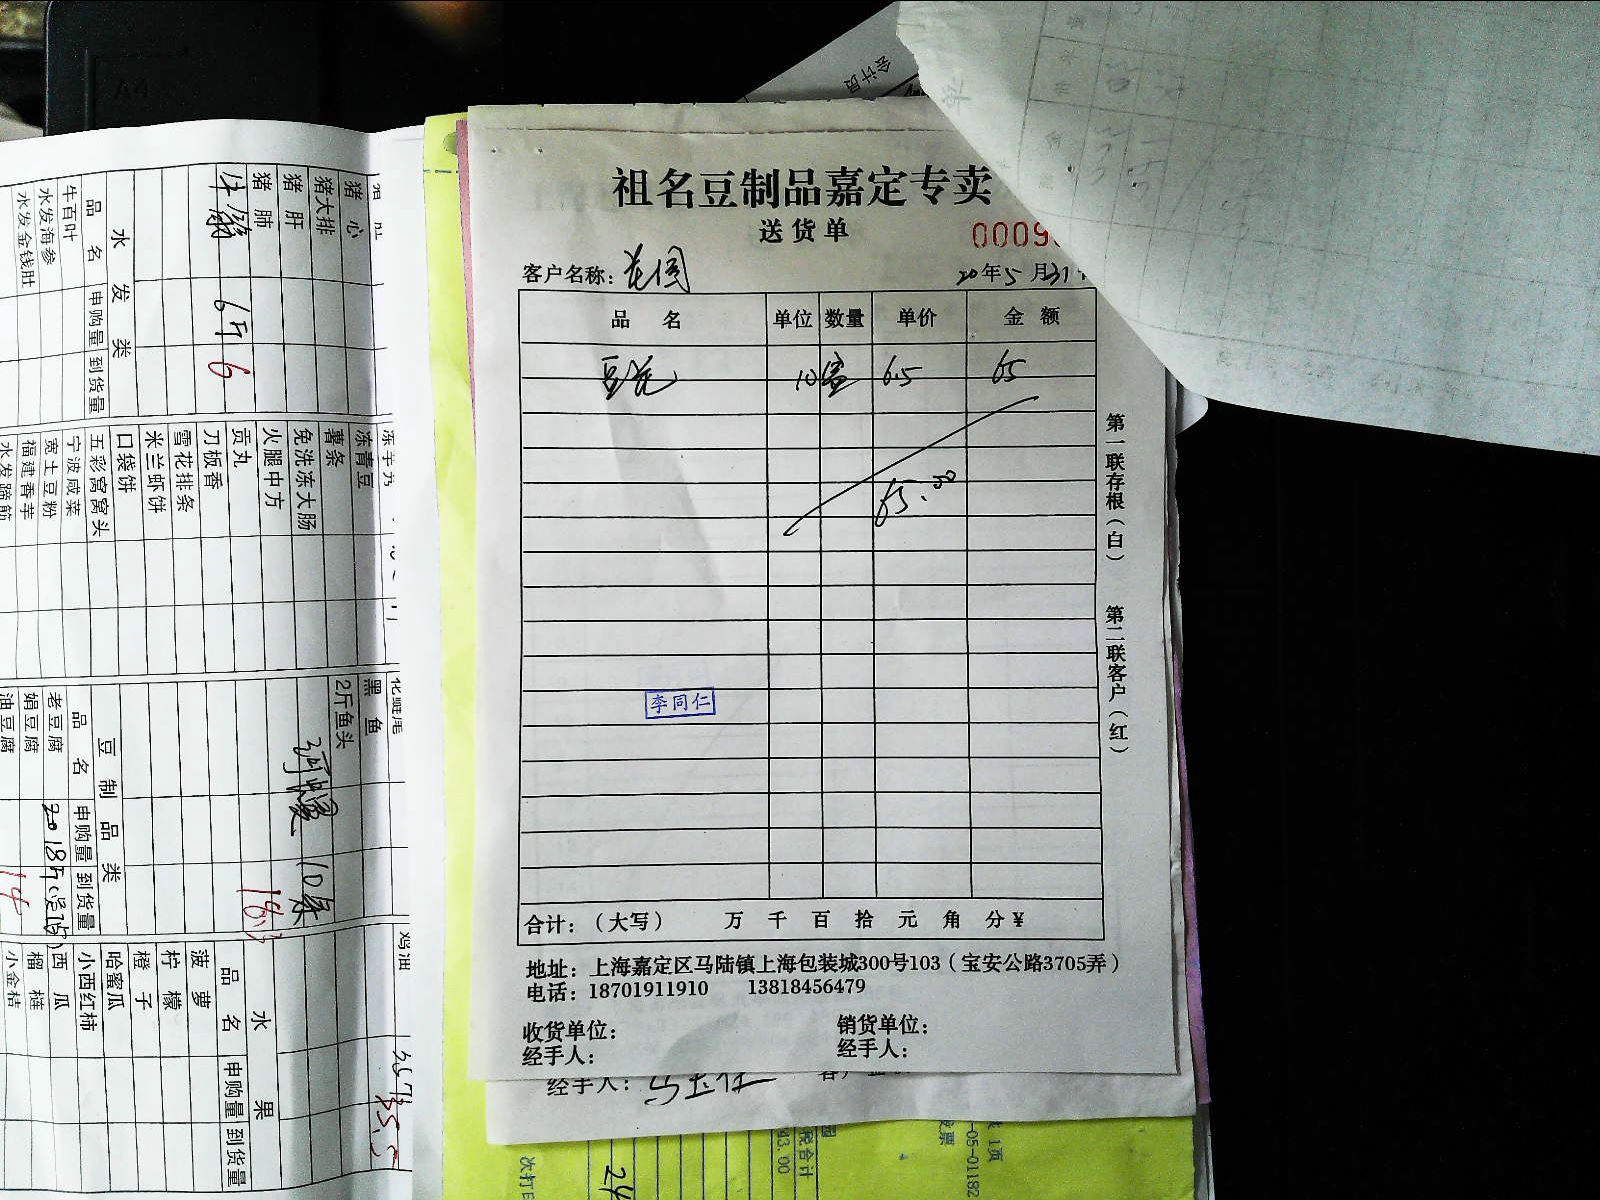 祖名豆制品嘉定专卖
送货单
0009
客户名称：花园
20年5月31
品名 单位 数量 单价 金额
豆花 10盒 6.5 65
65.00
李同仁
合计：（大写） 万 千 百 拾 元 角 分 ￥
地址：上海嘉定区马陆镇上海包装城300号103（宝安公路3705弄）
电话：18701911910 13818456479
收货单位： 销货单位：
经手人： 经手人：
第一联存根（白） 第二联客户（红）
经手人：
会计员
A4
猪心
猪大排
猪肝
猪肺
牛腩 6斤 6
水发类
品名 申购量 到货量
牛百叶
水发海参
水发金钱肚
冻青豆
薯条
免洗冻大肠
火腿中方
贡丸
刀板香
雪花排条
米兰虾饼
口袋饼
五彩窝窝头
宁波咸菜
宽土豆粉
福建香芋
水发蹄筋
黑鱼
2斤鱼头
河鳗 10条
豆制品类
品名 申购量 到货量
老豆腐
娟豆腐
油豆腐
14
鸡油
水果
品名 申购量 到货量
菠萝
柠檬
橙子
哈蜜瓜
小西红柿
西瓜
榴梿
小金桔
税合计
43.00
24
次打印
1页
-05-01182